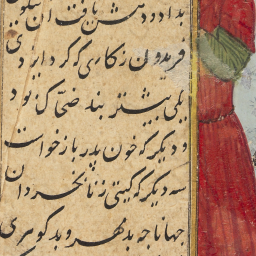 بداد و دهش یافت آن نیکوی
فریدون زکاری که کرد ایزدی
یکی پیشتر بند ضحاک بود
و دیگر که خون پدر بازخواست
سه دیگر که گیتی زنابخردان
جهانا چه بدمهر و بدگوهری